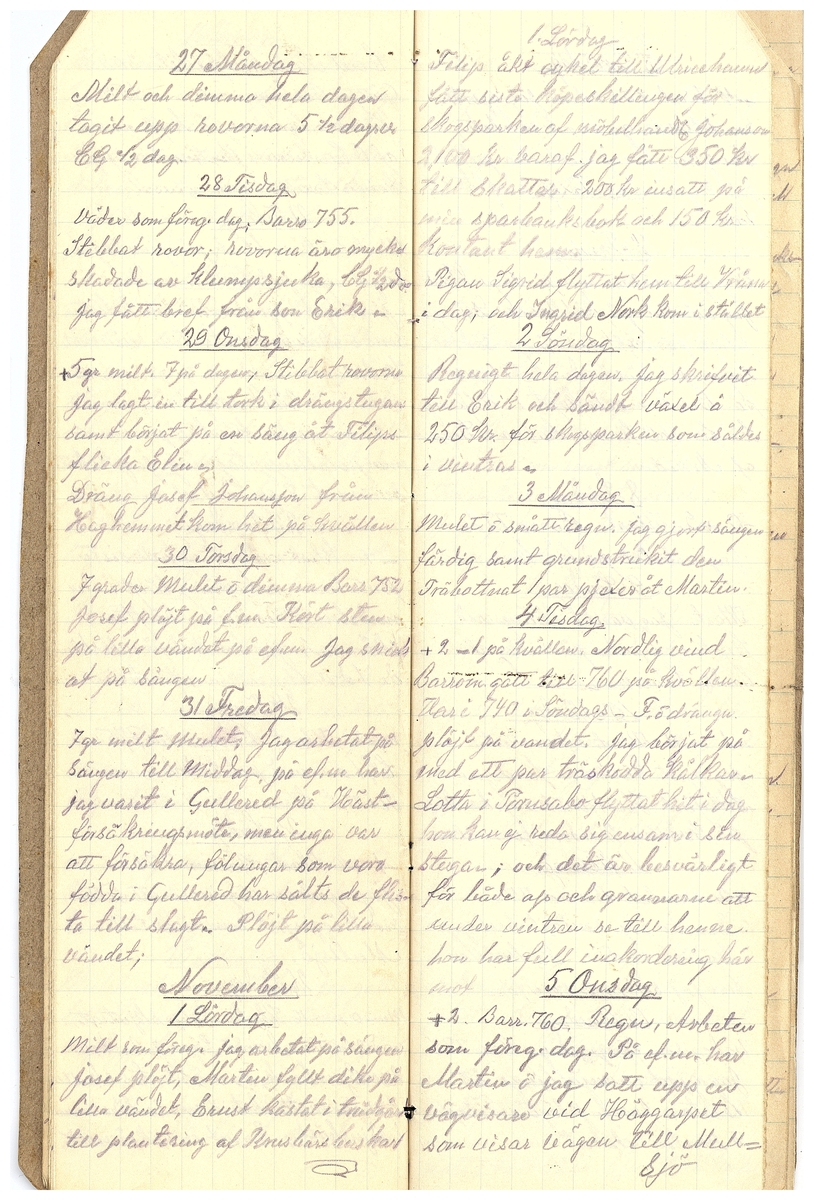 27 Måndag
Milt och dimma hela dagen
tagit upp rovorna 5 1/2 dagsv
CG 1/2 dag.
28 Tisdag
Väder som föreg. dag, Barro 755.
Stibbat rovor; rovorna äro mycke
skadade av klumpsjuka, CG 1/2 d
jag fått bref från son Erik
29 Onsdag
+5 gr milt 7 på dagen, Stibbat rovorna
Jag lagt in till tork i drängstugan
samt börjat på en säng åt Filips
flicka Elin
Dräng Josef Johansson från
Haghemmet kom hit på kvällen
30 Torsdag
7 grader Mulet o dimma Barr 752
Josef plöjt på f.m. Kört sten
på lilla vändet på ef.m. Jag snick
at på sängen
31 Fredag
7 gr milt Mulet, Jag arbetat på
Sängen till Middag, på ef.m har
jag varit i Gullered på Häst-
försäkringsmöte, men inga var
att försäkra, fölungar som voro
födda i Gullered har sålts de fles-
ta till slagt. Plöjt på lilla
vändet;
November
1 Lördag
Milt som föreg. jag arbetat på sängen
Josef plöjt, Martin fyllt dike på
lilla vändet, Ernst kastat i trädgår
till plantering af Krusbärsbuskar
1. Lördag
Filip åkt cykel till Ulricehamn
fått sista köpeskillingen för
skogsparken af möbelhandl E Johanson
2,100 kr varaf jag fått 350 kr
till skatter 200 kr insatt på
min sparbanksbok och 150 kr
Kontant hem.
Pigan Sigrid flyttat hem till
i dag; och Ingrid Nork kom i stället
2 Söndag
Regnigt hela dagen. jag skrifvit
till Erik och sändt växel å
250 Kr. för skogsparken som såldes
i vintras
3 Måndag
Mulet o smått regn. jag gjort sängen
färdig samt grundstrukit den
Träbottnat 1 par pjexer åt Martin.
4 Tisdag
+2 -1 på kvällen. Nordlig vind
Barrom. gått till 760 på kvällen.
Var i 740 i Söndags - F. o drängn.
plöjt på vändet. Jag börjat på
med ett par träskodda kälkar
Lotta i Tornsabo flyttat hit i dag
hon kan ej reda sig ensam i sin
stuga; och det är besvärligt
för både oss och grannarne att
under vintren se till henne.
hon har full inakordering här
mot
5 Onsdag
+2. Barr. 760. Regn, Arbeten
som föreg. dag. På ef.m. har
Martin o jag satt upp en
vägvisare vid Häggarpet
som visar vägen till Mull=
Sjö